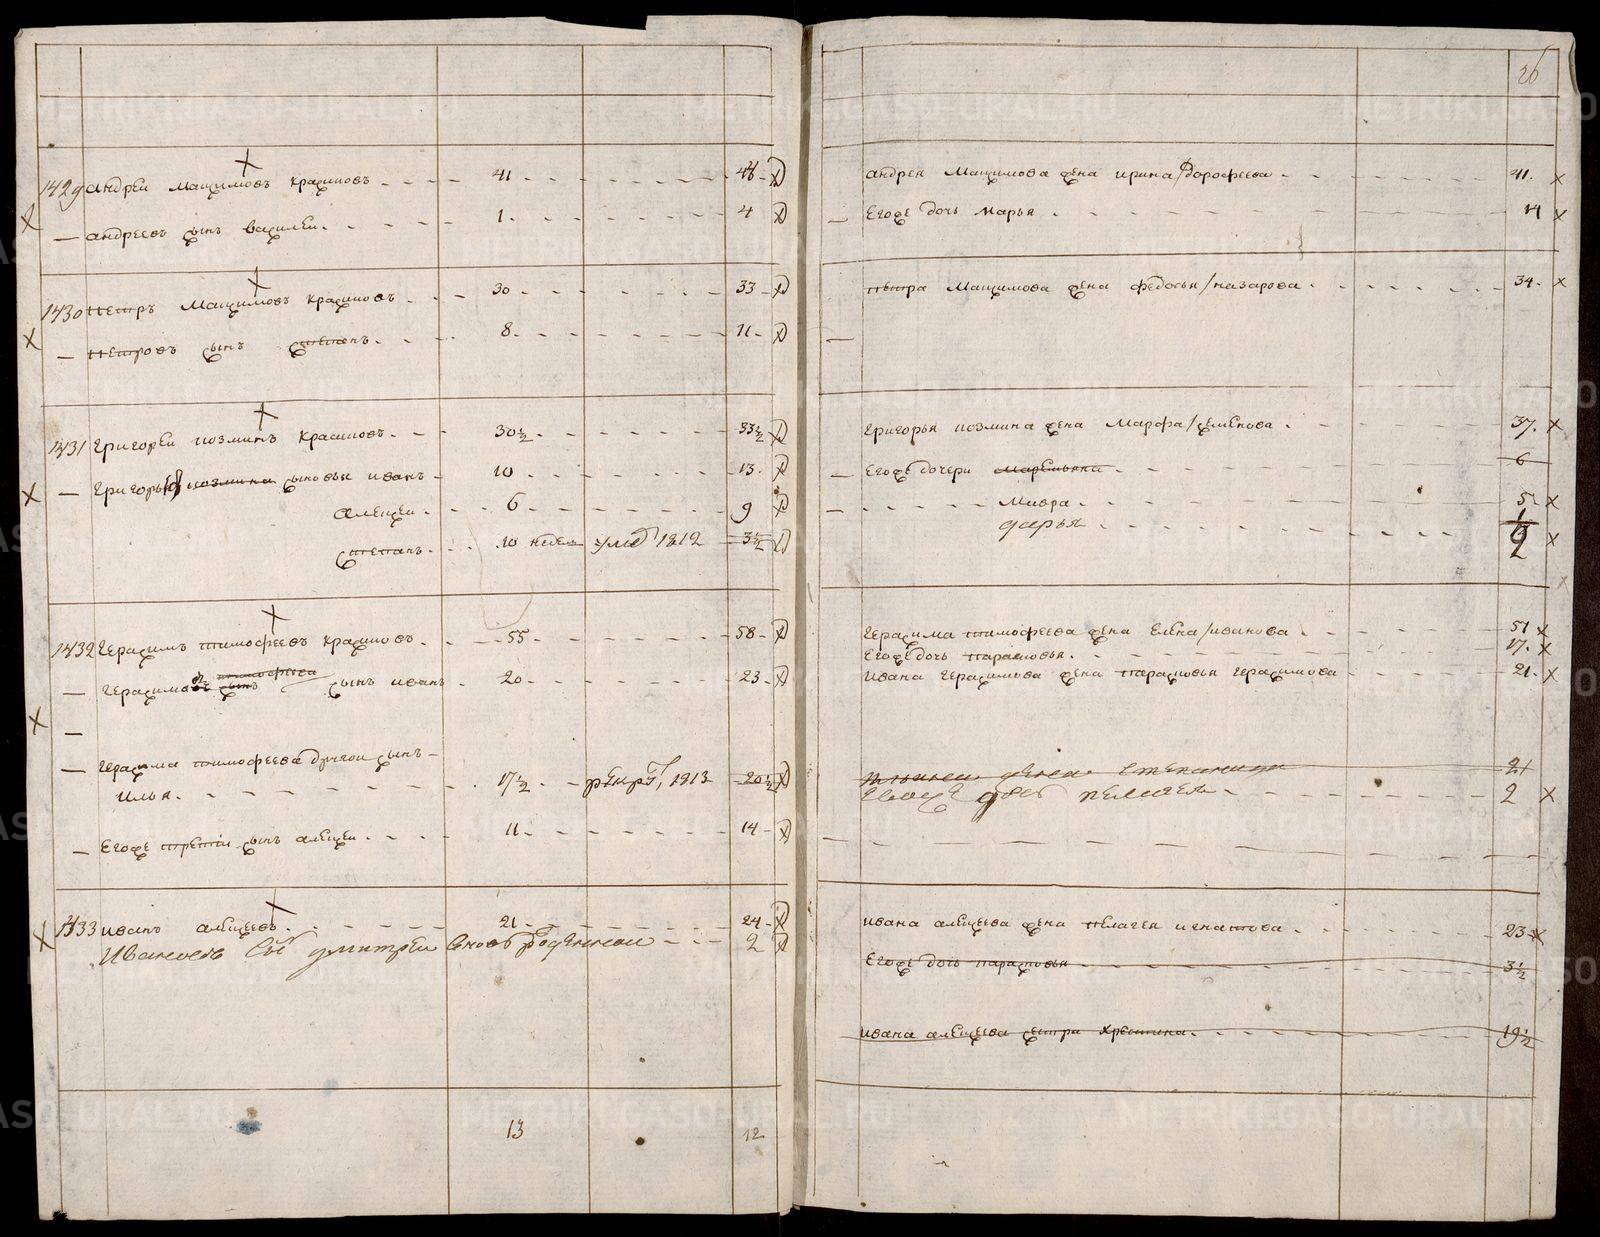 26
1429 андреи Маѯимовъ крадиновъ 41 44
— андреевъ сынъ василеи 1 4
1430 петръ Маѯимовъ крадиновъ 30 33
— петровъ сынъ степанъ 8 11
1431 григореи козминъ красиновъ 30½ 33½
— григорья козмина сыновья иванъ 10 13
алеѯеи 6 9
степанъ 10 недел умр 1812 3½
1432 герасимъ тимофеевъ крадиновъ 55 58
тимофеева
— герасимовъ сынъ сынъ иванъ 20 23
—
— герасима тимофеева другои сынъ
илья 17½ рекрут 1813 20½
— Егоже третии сынъ алеѯеи 11 14
1433 иванъ алеѯеевъ 21 24
Ивановъ сын дмитреи вновь рожденнои 2
13 12
андрея Маѯимова жена ирина/дорофеева 41
— Егоже дочь марья 14
петра Маѯимова жена федосья/назарова 34
—
григорья козмина жена Марфа/семенова 37
— Егоже дочери маремьяна 6
— Мавра 5
дарья ½ 9
герасима тимофеева жена Елена/иванова 51
Егоже дочь парасковья 17
ивана герасимова жена парасковья герасимова 21
жена степанида 21
Егоже дочь пелагея 2
ивана алеѯеева жена пелагея игнатова 23
Егоже дочь парасковья 3½
ивана алеѯеева сестра христина 19½
METRIKI.GASO-URAL.RU